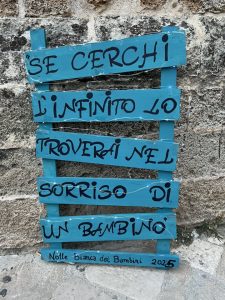 SE CERCHI
L'INFINITO LO
TROVERAI NEL
SORRISO DI
UN BAMBINO
Notte Bianca dei Bambini 2025